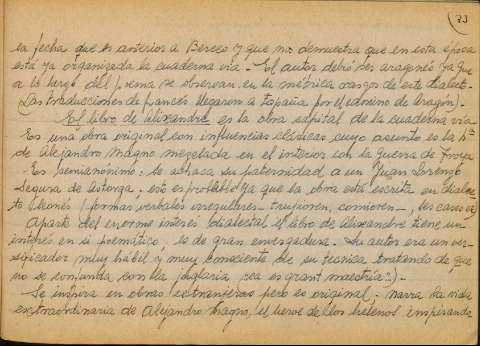 33
la fecha que es anterior a Berceo y que nos demuestra que en esta época
está ya organizada la cuaderna vía - El autor debió ser aragonés ya que
a lo largo del poema se observan en la métrica rasgos de este dialecto -
Las traducciones de francés llegaron a España por el camino de Aragón -
El libro de Alixandre es la obra capital de la cuaderna vía -
Es una obra original con influencias clásicas cuyo asunto es la hª
de Alejandro Magno mezclada en el interior con la Guerra de Troya
- Es semianónimo: se achaca su paternidad a un Juan Lorenzo
Segura de Astorga, esto es probable ya que la obra está escrita en dialec-
to leonés (formas verbales irregulares - trujioren, comioren -,
Aparte del enorme interés dialectal el libro de Alixandre tiene un
interés en sí poemático, es de gran envergadura. Su autor era un ver-
sificador muy hábil y muy consciente de su técnica tratando de que
no se confunda con la juglaria (ca es grant maestría:.) -
- Se inspira en obras extranjeras pero es original; narra la vida
extraordinaria de Alejandro Magno, el heroe de los helenos